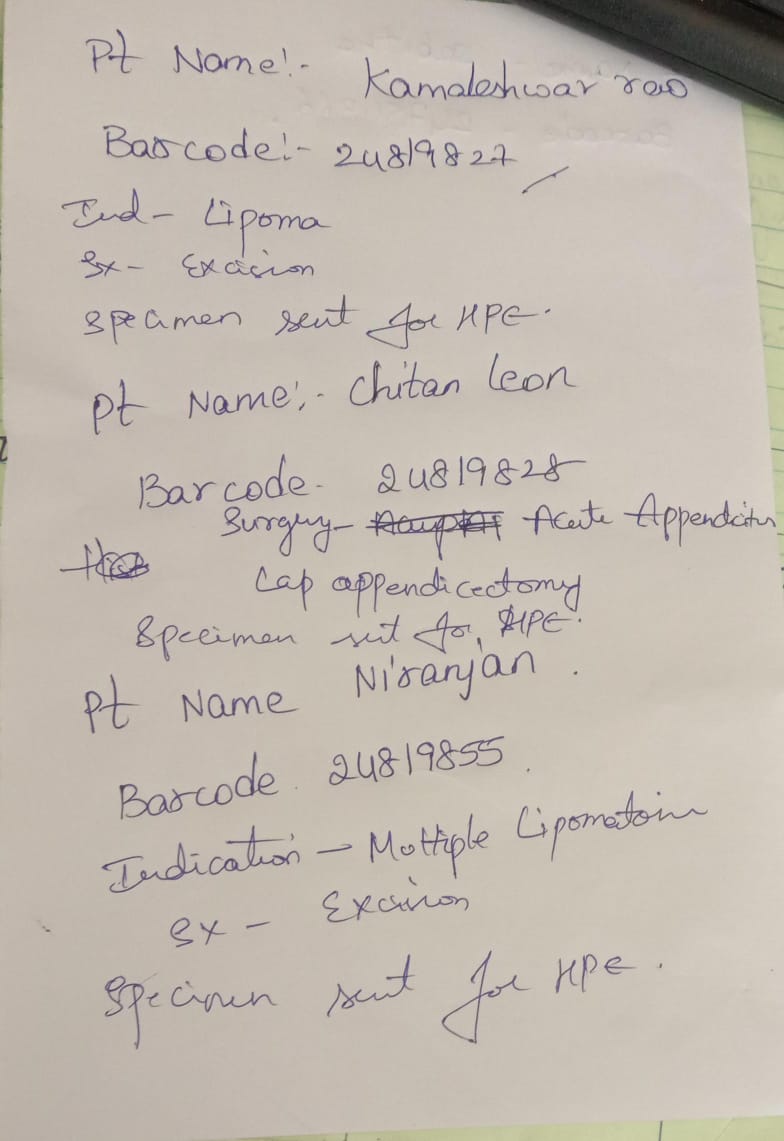 Pt Name:- Kamaleshwar rao
Barcode:- 24819827
Ind - Lipoma
Sx - Excision
Specimen sent for HPE.
Pt Name:- Chitan Leon
Barcode- 24819828
Surgery- Acute Appendicitis
Lap appendicectomy
Specimen sent for, HPE.
Pt Name Niranjan.
Barcode. 24819855.
Indication - Multiple Lipomatosis
Sx - Excision
Specimen sent for HPE.